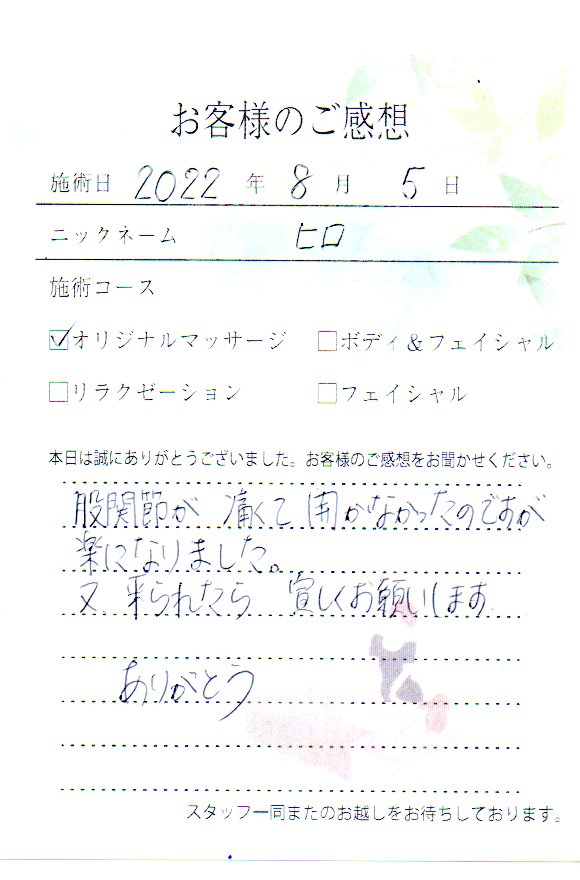 お客様のご感想
施術日 2022 年 8 月 5 日
ニックネーム ヒロ
施術コース
☑オリジナルマッサージ □ボディ&フェイシャル
□リラクゼーション □フェイシャル
本日は誠にありがとうございました。お客様のご感想をお聞かせください。
股関節が 痛くて 開かなかったのですが
楽になりました。
又、来られたら 宜しくお願いします
ありがとう
スタッフ一同またのお越しをお待ちしております。